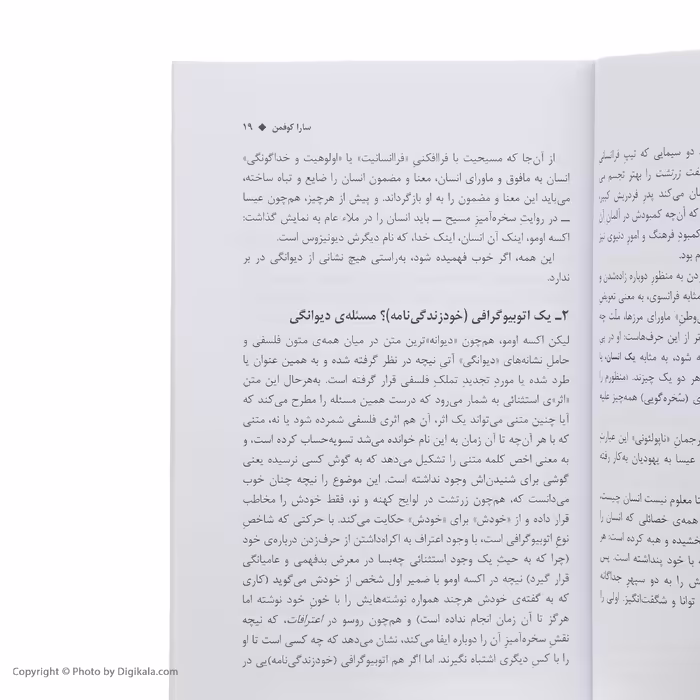 سارا کوفمن ◆ ۱۹
از آن‌جا که مسیحیت با فراافکنیِ «فراانسانیت» یا «اولوهیت و خداگونگی»
انسان به مافوق و ماورای انسان، معنا و مضمون انسان را ضایع و تباه ساخته،
می‌باید این معنا و مضمون را به او بازگرداند. و پیش از هرچیز، هم‌چون عیسا
ــ در روایتِ سخره‌آمیزِ مسیح ــ باید انسان را در ملاء عام به نمایش گذاشت:
اکسه اومو، اینک آن انسان، اینک خدا، که نام دیگرش دیونیزوس است.
این همه، اگر خوب فهمیده شود، به‌راستی هیچ نشانی از دیوانگی در بر
ندارد.
۲ـ یک اتوبیوگرافی (خودزندگی‌نامه)؟ مسئله‌ی دیوانگی
لیکن اکسه اومو، هم‌چون «دیوانه»ترین متن در میان همه‌ی متون فلسفی و
حاملِ نشانه‌های «دیوانگی» آتی نیچه در نظر گرفته شده و به همین عنوان یا
طرد شده یا موردِ تجدیدِ تملکِ فلسفی قرار گرفته است. به‌هرحال این متن
«اثر»ی استثنائی به شمار می‌رود که درست همین مسئله را مطرح می‌کند که
آیا چنین متنی می‌تواند یک اثر، آن هم اثری فلسفی شمرده شود یا نه، متنی
که با هر آن‌چه تا آن زمان به این نام خوانده می‌شد تسویه‌حساب کرده است، و
به معنی اخص کلمه متنی را تشکیل می‌دهد که به گوش کسی نرسیده یعنی
گوشی برای شنیدن‌اش وجود نداشته است. این موضوع را نیچه چنان خوب
می‌دانست که، هم‌چون زرتشت در لوایح کهنه و نو، فقط خودش را مخاطب
قرار داده و از «خودش» برای «خودش» حکایت می‌کند. با حرکتی که شاخصِ
نوع اتوبیوگرافی است، با وجود اعتراف به اکراه‌داشتن از حرف‌زدن درباره‌ی خود
(چرا که به حیثِ یک وجود استثنائی چه‌بسا در معرض بدفهمی و عامیانگی
قرار گیرد) نیچه در اکسه اومو با ضمیر اول شخص از خودش می‌گوید (کاری
که به گفته‌ی خودش هرچند همواره نوشته‌هایش را با خونِ خود نوشته اما
هرگز تا آن زمان انجام نداده است) و هم‌چون روسو در اعترافات، که نیچه
نقشِ سخره‌آمیزِ آن را دوباره ایفا می‌کند، نشان می‌دهد که چه کسی است تا او
را با کسِ دیگری اشتباه نگیرند. اما اگر هم اتوبیوگرافی (خودزندگی‌نامه)یی در
دو سیمایی که تیپ فرانسلی
زرتشت را بهتر تجسم
می‌کند پدرِ فردریش کبیر،
که آن‌چه کمبودش در آلمان آن
کمبودِ فرهنگ و امورِ دنیوی نیز
بود.
به منظورِ دوباره زاده‌شدن و
مثابه فرانسوی، به معنی تعویضِ
ماورای مرزها، ملّت چه
از این حرف‌هاست: او در پی
شود، به مثابه یک انسان، یا
دو یک چیزند. (منظورم را
(سُخره‌گویی) همه‌چیز علیه
«ناپولئونی» این عبارت
عیسا به یهودیان به‌کار رفته
معلوم نیست انسان چیست،
همه‌ی خصائلی که انسان را
و هبه کرده است: هر
با خود پنداشته است. پس
را به دو سپهرِ جداگانه
توانا و شگفت‌انگیز. اولی را
Copyright © Photo by Digikala.com